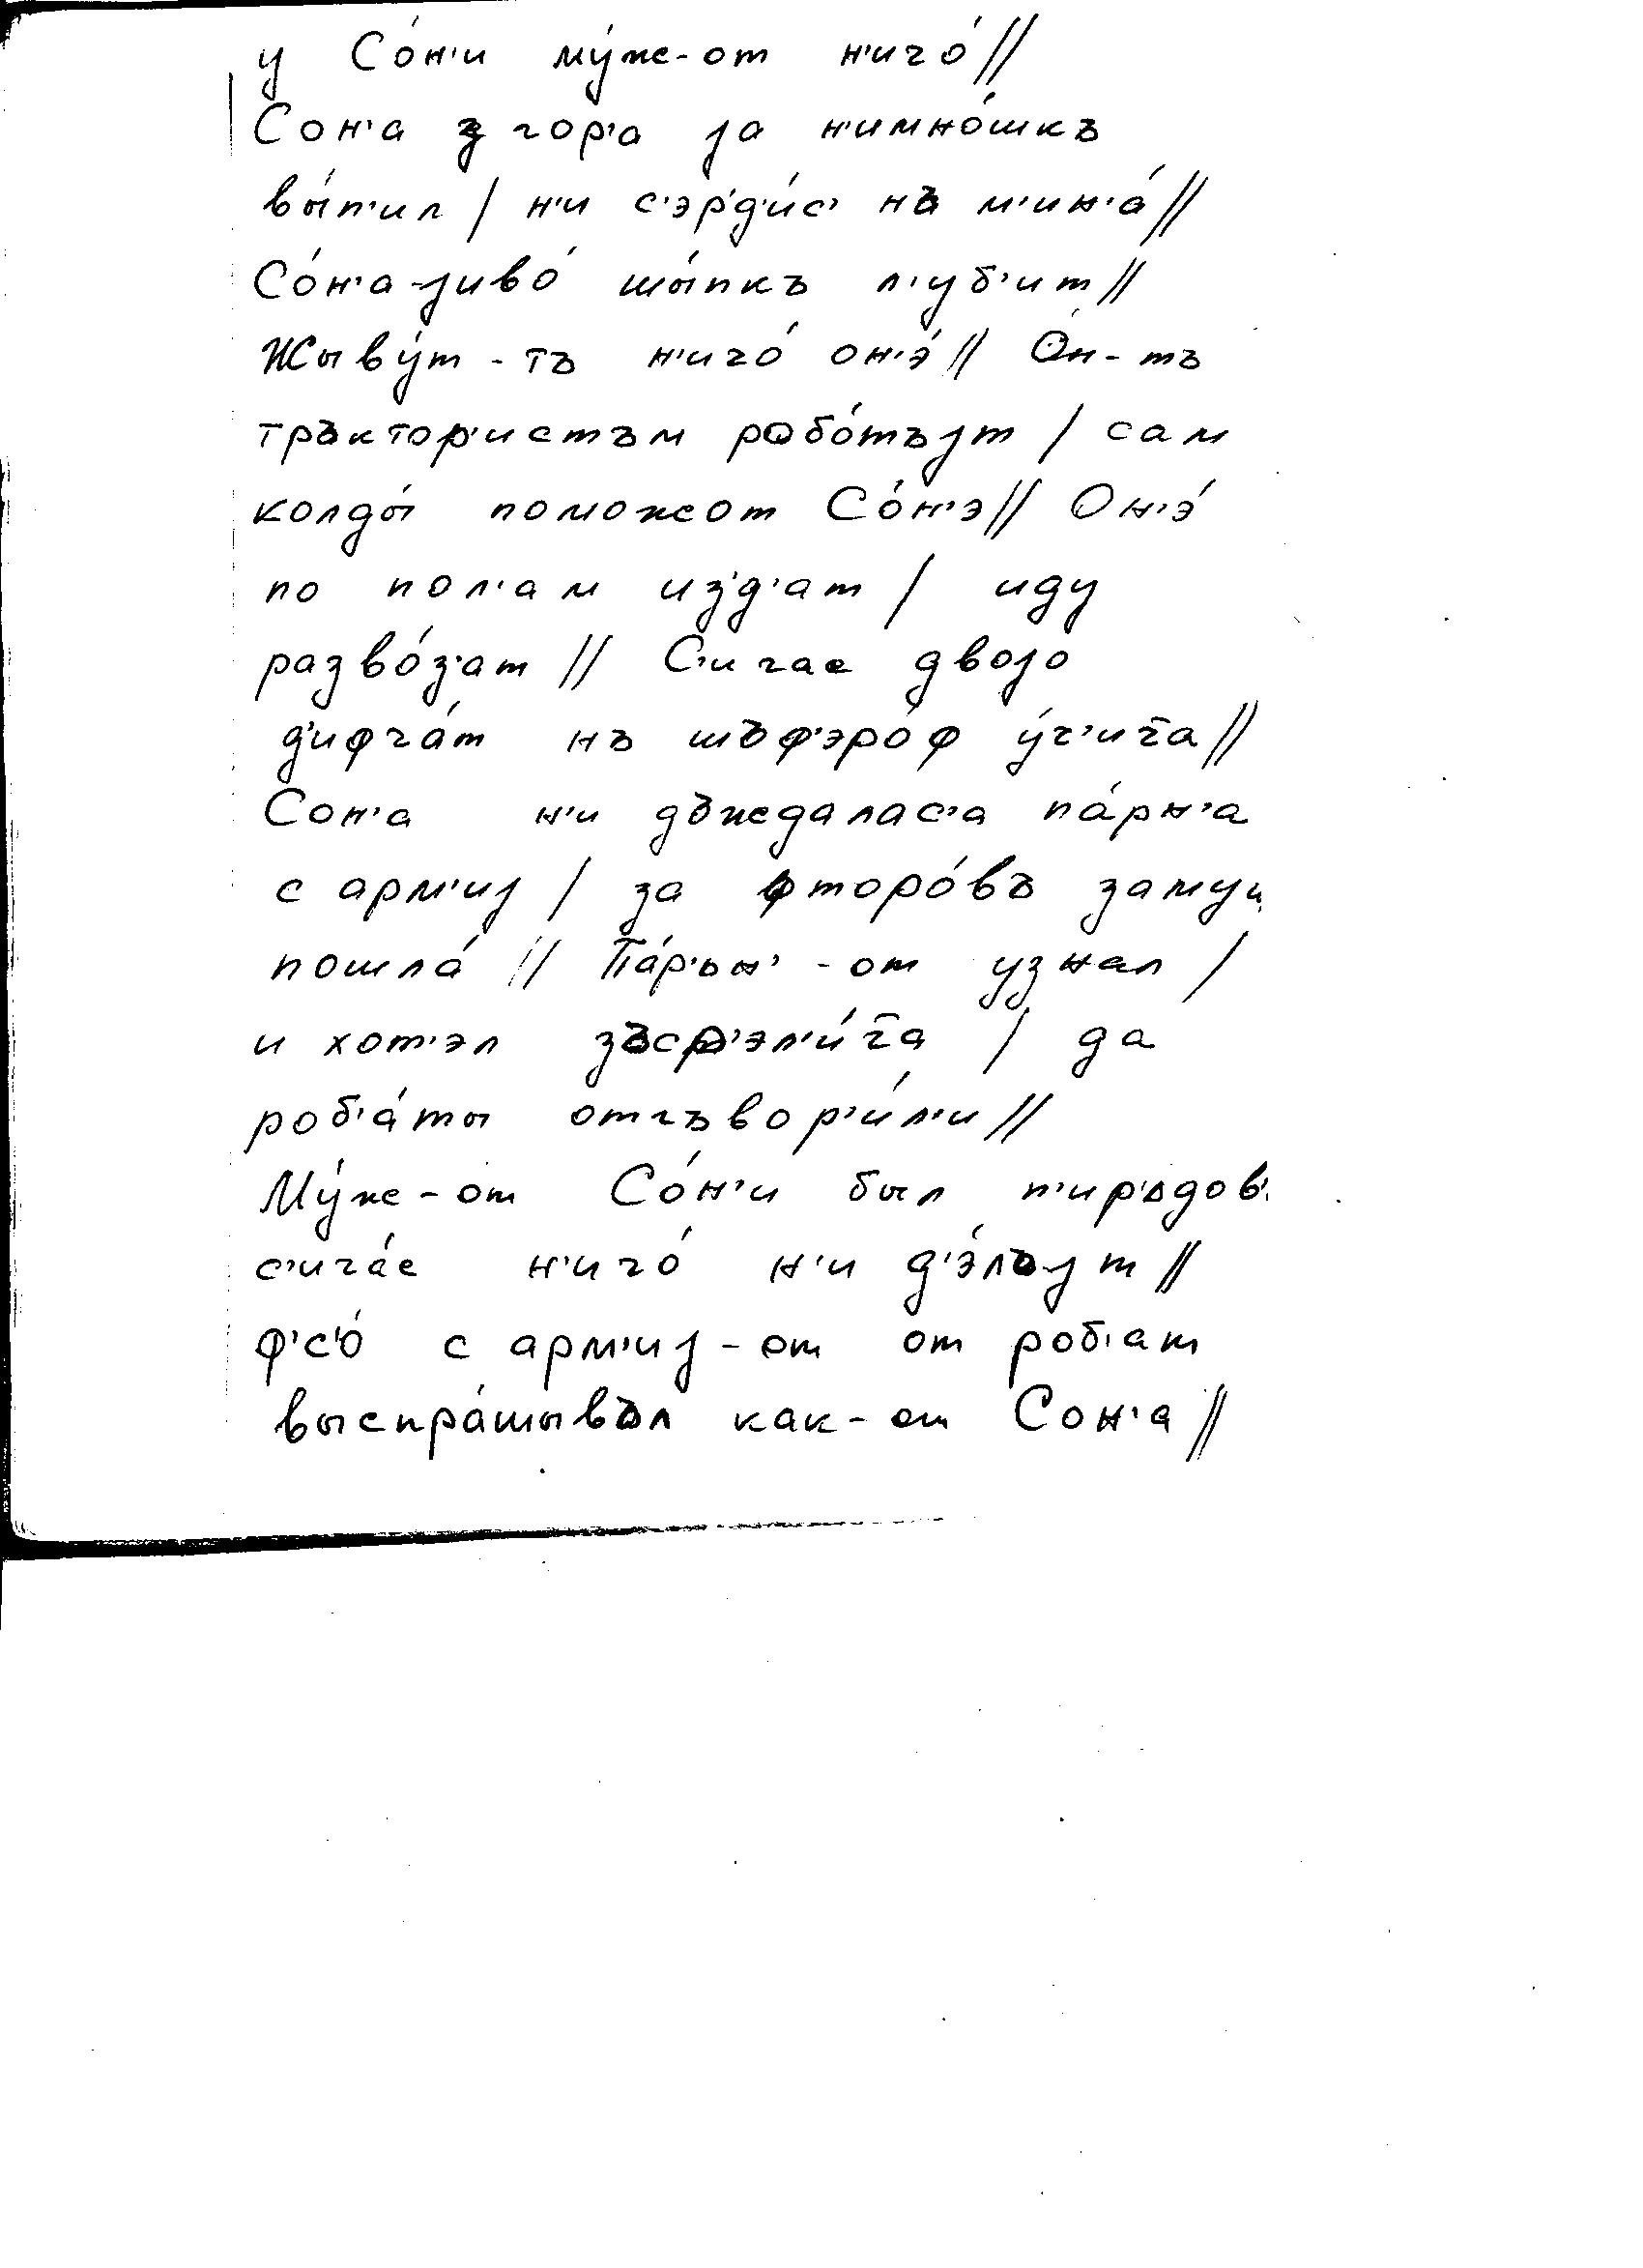 у Со́н'и му́же-от н'ичо́ //
Сон'а з гор'а jа н'имно́шкъ
вы́п'ил / н'и с'эр'д'и́с' нъ м'ин'а́ //
Со́н'а-jиво́ шы́пкъ л'уб'ит //
Жыву́т-тъ н'ичо́ он'э́ // О́н-тъ
тръктор'истъм робо́тъjт / сам
колды́ поможот Со́н'э // Он'э́
по пол'ам из'д'ат / иду
разво́з'ат // С'ичас двоjо
д'ифча́т нъ шъф'эро́ф у́ч'ит̅а //
Сон'а н'и дъждалас'а па́рн'а
с арм'иj / за фторо́въ заму
пошла́ // Па́р'ьн'-от узнал /
и хот'эл зъср'эл'и́т̅а / да
роб'а́ты отгъвор'и́л'и //
Му́же-от Со́н'и был п'ир'адов'
с'ича́с н'ичо́ н'и д'э́лъjт //
ф'с'о́ с арм'иj-от от роб'ат
выспра́шывъл как-от Сон'а //